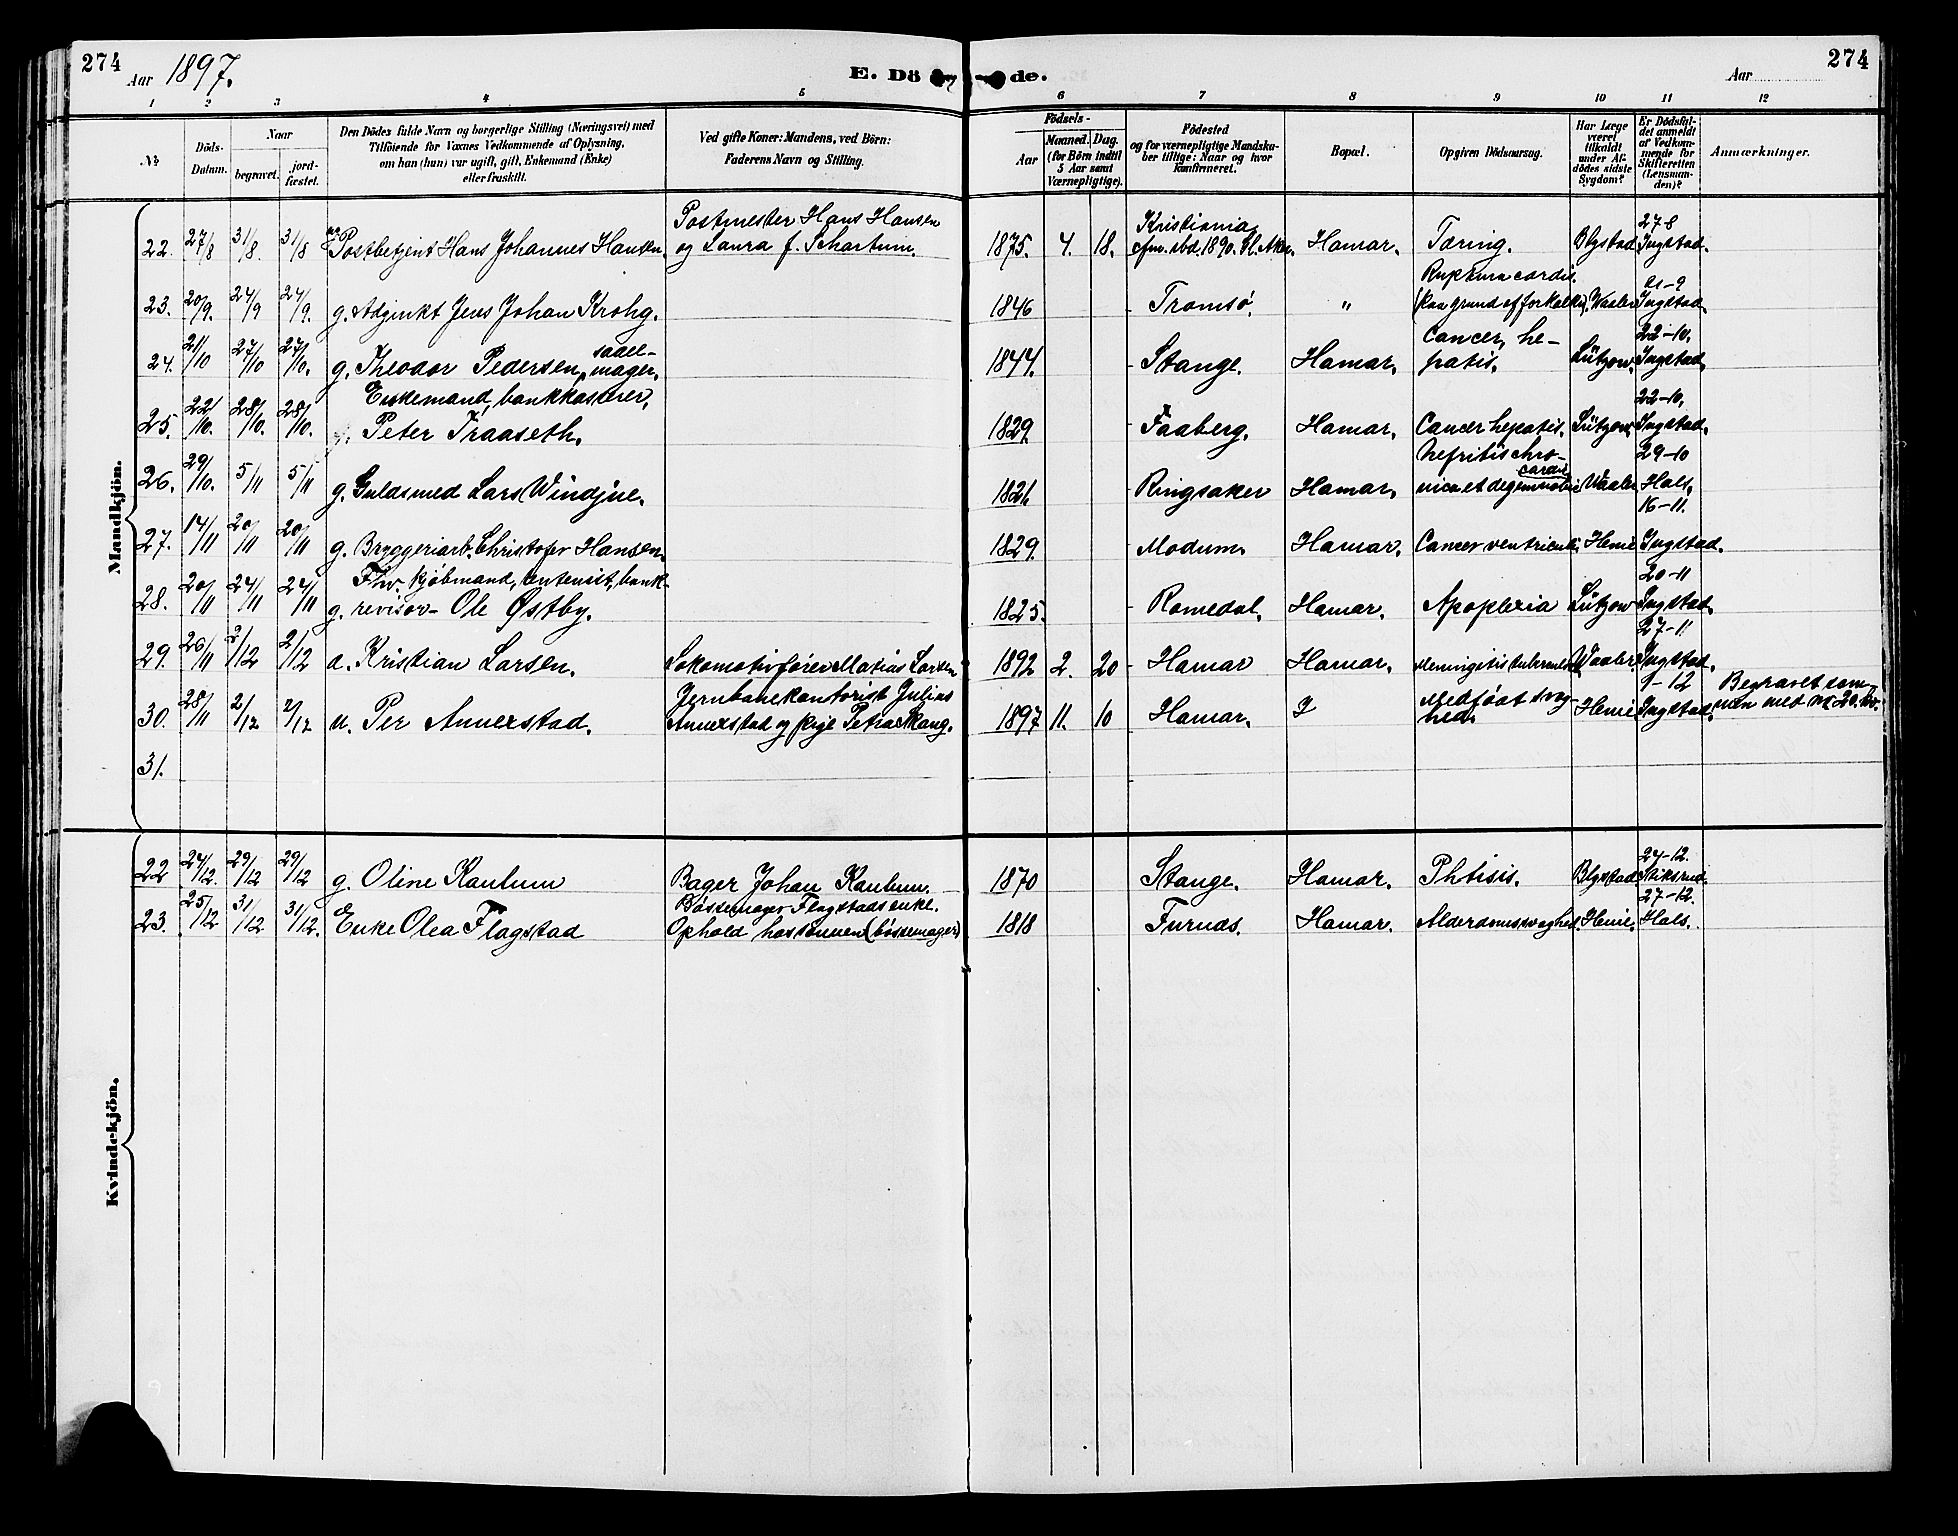 274
Aar 1897.
E. Dö de.
Aar
274
1 2 3 4 5 6 7 8 9 10 11 12
No
Döds-
Datum.
Naar
begravet.
jord-
fæstet.
Den Dödes fulde Navn og borgerlige Stilling (Næringsvei) med
Tilföiende for Voxnes Vedkommende af Oplysning,
om han (hun) var ugift, gift, Enkemand (Enke)
eller fraskilt.
Ved gifte Koner: Mandens, ved Börn:
Faderens Navn og Stilling.
Födsels-
Aar
Maaned. Dag.
(for Börn indtil
5 Aar samt
Værnepligtige).
Födested
og for værnepligtige Mandska-
ber tillige: Naar og hvor
konfirmeret.
Bopæl.
Opgiven Dödsaarsag.
Har Læge
været
tilkaldt
under Af-
dödes sidste
Sygdom?
Er Dödsfal-
det anmeldt
af Vedkom-
mende for
Skifteretten
(Lensman-
den)?
Anmærkninger.
Mandkjön.
Postmester Hans Hansen Kristiania 27-8
22. 27/8 31/8. 31/8 Postbetjent Hans Johannes Hansen. og Laura f. Schartum. 1875. 4. 18. cfm. 1890. Gl. Aker. Hamar. Tæring. Blystad Ingstad.
Ruptura cordis. 21-9
23. 20/9. 24/9 24/9. g. Adjunkt Jens Johan Krohg. 1846 Tromsø. " (paa grund af forkalkn). Waaler Ingstad.
sadel- Cancer he- 22-10.
24. 21/10 27/10 27/10. g. Theodor Pedersen, mager. 1844. Stange. Hamar. patis. Lützow. Ingstad.
Enkemand, bankkasserer, 22-10.
25. 22/10. 28/10. 28/10. Peter Traaseth. 1829. Faaberg. Hamar. Cancer hepatis. Lützow. Ingstad.
Nefritis chro- 29-10
26. 29/10. 5/11 5/11 g. Guldsmed Lars Windju. 1821. Ringsaker Hamar. nica et degeneratio cordis Waaler Hals.
16-11.
27. 14/11 20/11 20/11 g. Bryggeriarb. Christofer Hansen. 1829. Modum. Hamar. Cancer ventriculi. Henie Ingstad.
Fhv. kjöbmand, bank- 20-11
28. 20/11 24/11 24/11 g. revisor - Ole Østby. 1825. Romedal. Hamar. Apoplexia Lützow Ingstad.
27-11
29. 26/11 2/12 2/12 Kristian Larsen. Lokomotivfører Matius Larsen 1892 2. 20 Hamar Hamar. Meningitis Waaler Ingstad.
Jernbanekontorist Julius Medfødt svag- 1-12 Begravet sam-
30. 28/11 2/12 2/12 u. Per Annerstad. Annerstad og pige Petra Skaug. 1897 11. 10 Hamar. hed. Henie Ingstad. men med
31.
Kvindekjön.
24-12.
22 24/12. 29/12 29/12 g. Oline Kautum Bager Johan Kautum. 1870 Stange. Hamar. Phtisis. Blystad. Stiksrud.
Bøssemager Flagstads enke. 27-12.
23. 25/12 31/12 31/12. Enke Olea Flagstad Ophold hos sønnen (bøssemager) 1818 Furnæs. Hamar. Alderdomssvaghed. Henie. Hals.